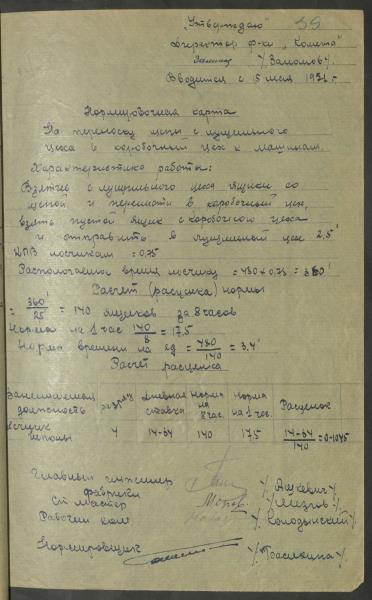 "Утверждаю" 39
Директор ф-ки "Комета"
/Заломов/.
Вводится с 15 мая 1931 г.
Нормировочная карта
На переноску щепы с лущильного
цеха в коробочный цех к машинам.
Характеристика работы:
Взятие с лущильного цеха ящики со
щепой и перенести в коробочный цех,
взять пустой ящик с коробочного цеха
и отправить в лущильный цех 2,5'
КПВ носчикам = 0,75
Располагаемое время носчику = 480 × 0,75 = 360'
Расчет (расценка) нормы
= 360'/2,5' = 140 ящиков за 8 часов
Норма на 1 час 140/8 = 17,5
Норма времени на ед = 480/140 = 3,4'
Расчет расценка
Занимаемая должность разряд Дневная ставка Норма на 8 час. Норма на 1 час. Расценок
носчик щепы 4 14-64 140 17,5 14-64/140 = 0-1045
Главный инженер
фабрики /Ацкевич/
Ст. Мастер
Рабочий ком /Колодынский/
Нормировщик